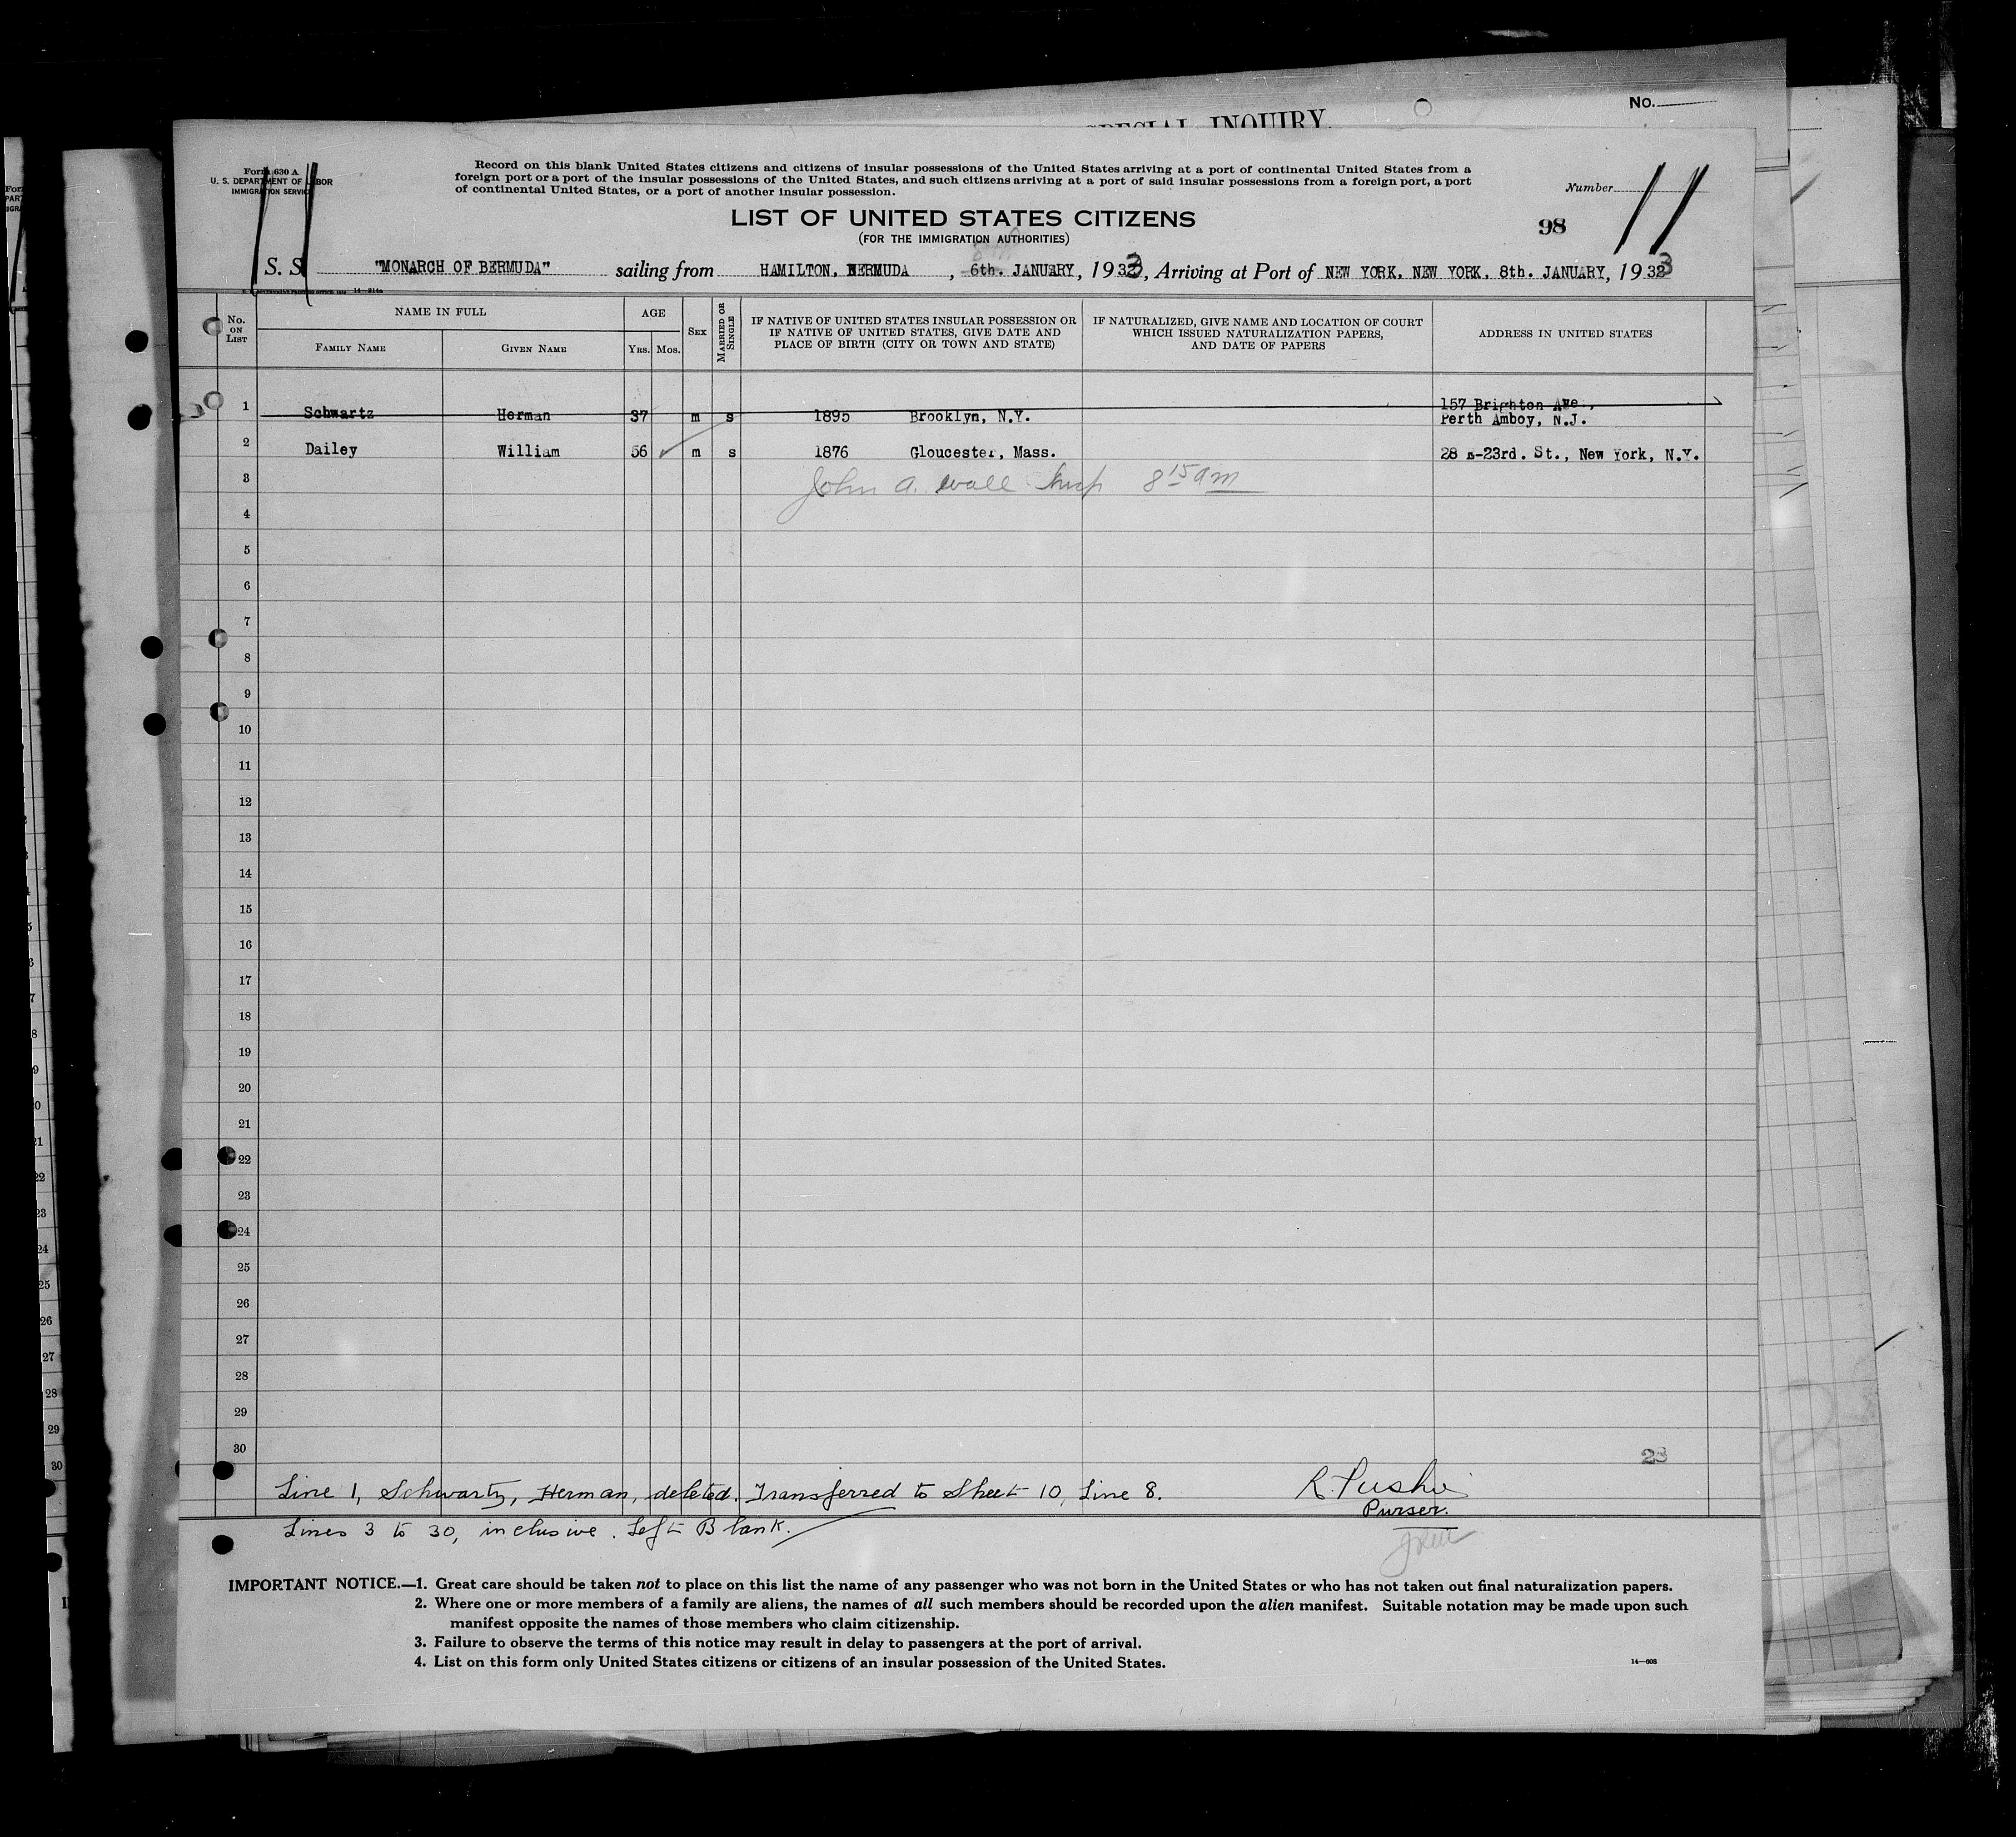 SPECIAL INQUIRY
No.
Form 630 A
U. S. DEPARTMENT OF LABOR
IMMIGRATION SERVICE
Record on this blank United States citizens and citizens of insular possessions of the United States arriving at a port of continental United States from a
foreign port or a port of the insular possessions of the United States, and such citizens arriving at a port of said insular possessions from a foreign port, a port
of continental United States, or a port of another insular possession.
Number
11
11
LIST OF UNITED STATES CITIZENS
98
(FOR THE IMMIGRATION AUTHORITIES)
S. S. "MONARCH OF BERMUDA" sailing from HAMILTON, BERMUDA, 6th. JANUARY, 1933, Arriving at Port of NEW YORK, NEW YORK, 8th. JANUARY, 1933
No. ON LIST
NAME IN FULL
FAMILY NAME
GIVEN NAME
AGE
YRS. MOS.
SEX
MARRIED OR SINGLE
IF NATIVE OF UNITED STATES INSULAR POSSESSION OR
IF NATIVE OF UNITED STATES, GIVE DATE AND
PLACE OF BIRTH (CITY OR TOWN AND STATE)
IF NATURALIZED, GIVE NAME AND LOCATION OF COURT
WHICH ISSUED NATURALIZATION PAPERS,
AND DATE OF PAPERS
ADDRESS IN UNITED STATES
1 Schwartz Herman 37 m s 1895 Brooklyn, N.Y. 157 Brighton Ave.,
Perth Amboy, N.J.
2 Dailey William 56 m s 1876 Gloucester, Mass. 28 E-23rd. St., New York, N.Y.
3 John A. Wall Insp 8 15 am
4
5
6
7
8
9
10
11
12
13
14
15
16
17
18
19
20
21
22
23
24
25
26
27
28
29
30
Line 1, Schwartz, Herman, deleted. Transferred to Sheet 10, Line 8.
Purser.
Lines 3 to 30, inclusive. Left Blank.
IMPORTANT NOTICE.—1. Great care should be taken not to place on this list the name of any passenger who was not born in the United States or who has not taken out final naturalization papers.
2. Where one or more members of a family are aliens, the names of all such members should be recorded upon the alien manifest. Suitable notation may be made upon such
manifest opposite the names of those members who claim citizenship.
3. Failure to observe the terms of this notice may result in delay to passengers at the port of arrival.
4. List on this form only United States citizens or citizens of an insular possession of the United States.
14—608